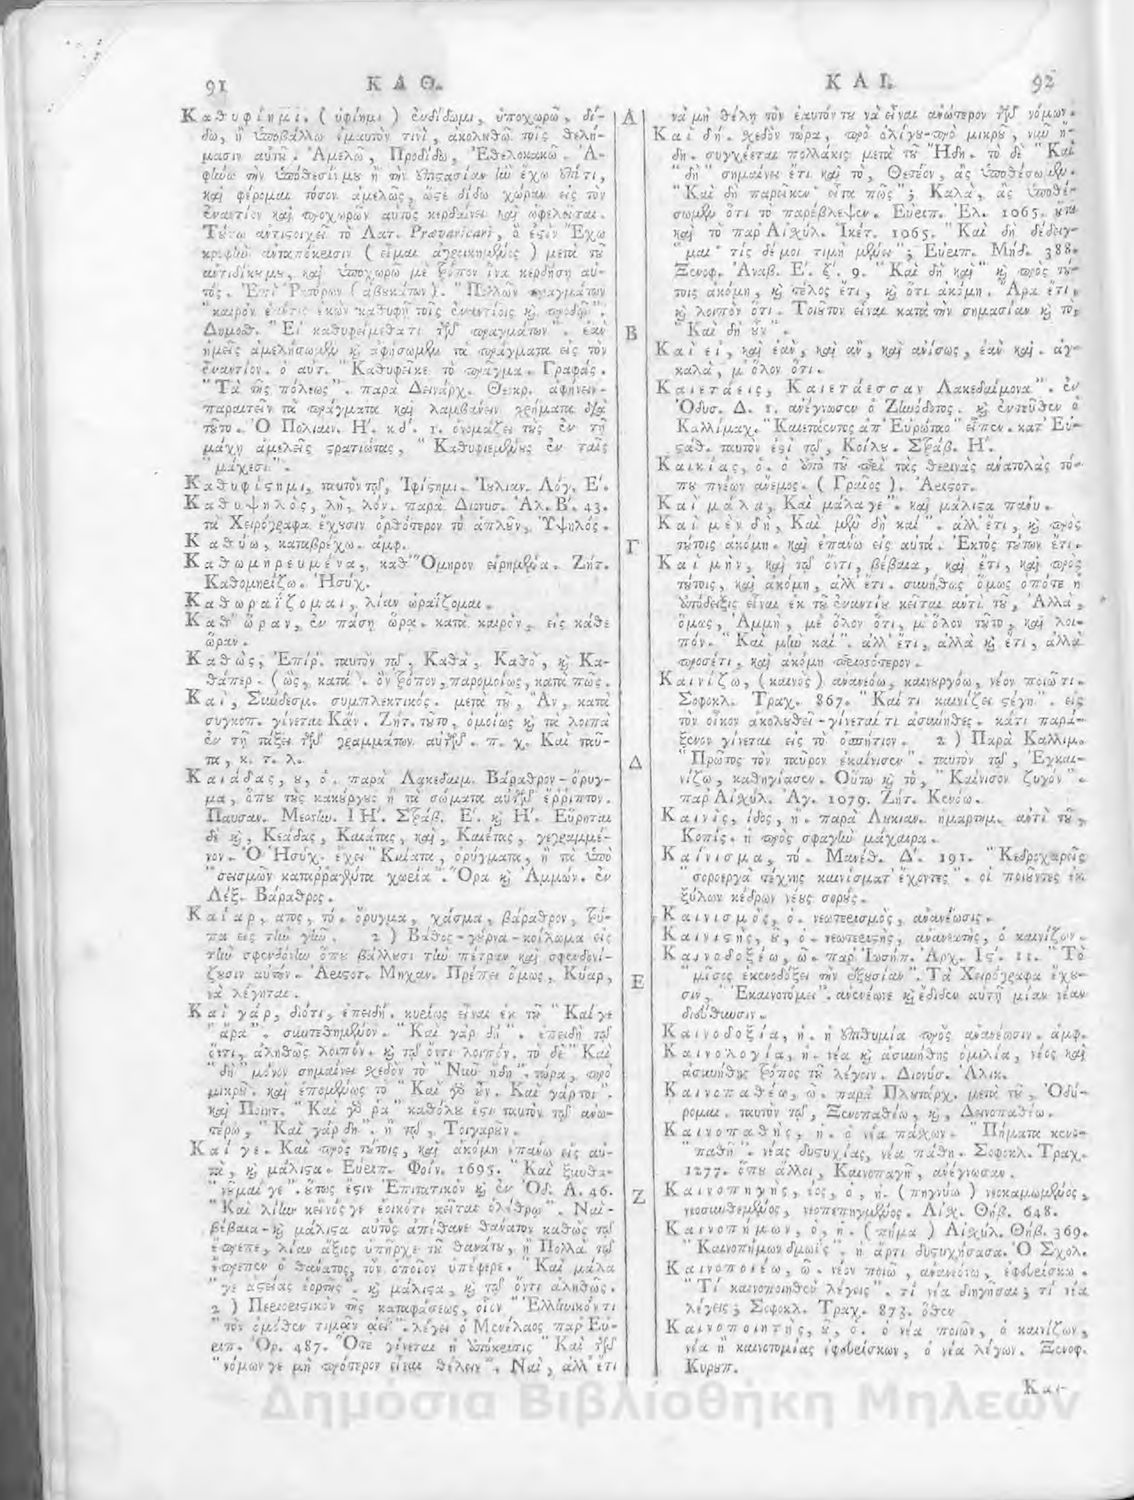 91 ΚΑΘ.
Καθυφίημι. ( ὑφίημι ) ἐνδίδωμι, ὑποχωρῶ, δί-
δω, ἢ ὑποβάλλω ἐμαυτὸν τινὶ, ἀκολουθῶ τοῖς θελή-
μασιν αὐτοῦ. Ἀμελῶ, Προδίδω, Ἐθελοκακῶ. Ἀ-
φίνω τὴν ὑπόθεσίν μου ἢ τὴν ἐπιστασίαν ἣν ἔχω ἐπί τι,
καὶ φέρομαι τόσον ἀμελῶς, ὥστε δίδω χώραν εἰς τὸν
ἐναντίον καὶ προχωρῶν αὐτὸς κερδαίνει καὶ ὠφελεῖται.
Τούτῳ ἀντιστοιχεῖ τὸ Λατ. Prævaricari, ὅ ἐστιν Ἔχω
κρυφίαν ἀνταπόκρισιν ( εἶμαι ) μετὰ τοῦ
ἀντιδίκου μου, καὶ ὑποχωρῶ μὲ τρόπον ἵνα κερδήσῃ αὐ-
τός. Ἐπὶ Ῥητόρων ( ἀβοκάτων ). "Πολλῶν πραγμάτων
"καιρὸν ἑκὼν καθυφῇ τοῖς ἐναντίοις καὶ προδῷ".
Δημοσθ. "Εἰ καθυφείμεθά τι τῶν πραγμάτων". ἐὰν
ἡμεῖς ἀμελήσωμεν καὶ ἀφήσωμεν τὰ πράγματα εἰς τὸν
ἐναντίον. ὁ αὐτ. "Καθυφεῖκε τὸ πρᾶγμα. Γραφάς.
"Τὰ τῆς πόλεως". παρὰ Δεινάρχ. Θεοκρ. ἀφήνειν-
παραιτεῖν τὰ πράγματα καὶ λαμβάνειν χρήματα διὰ
τοῦτο. Ὁ Πολύαιν. Η΄. κδ΄. 1. ὀνομάζει τοὺς ἐν τῇ
μάχῃ ἀμελεῖς στρατιώτας, "Καθυφιεμένους ἐν ταῖς
"μάχεσι".
Καθυφίστημι, ταυτὸν τῷ, Ὑφίστημι. Ἰουλιαν. Λόγ. Ε΄.
Καθυψηλὸς, λὴ, λόν. παρὰ Διονυσ. Ἁλ. Β΄. 43.
τὰ Χειρόγραφα ἔχουσιν ὀρθότερον τὸ ἁπλοῦν, Ὑψηλός.
Καθύω, καταβρέχω. ἀμφ.
Καθωμηρευμένα, καθ' Ὅμηρον εἰρημένα. Ζήτ.
Καθομηρίζω. Ἡσύχ.
Καθωραΐζομαι, λίαν ὡραΐζομαι.
Καθ' ὥραν, ἐν πάσῃ ὥρᾳ. κατὰ καιρὸν, εἰς κάθε
ὥραν.
Καθὼς, Ἐπίρ. ταυτὸν τῷ, Καθὰ, Καθὸ, καὶ Κα-
θάπερ. ( ὡς, κατά ). ὃν τρόπον, παρομοίως, κατὰ πῶς.
Καὶ, Σύνδεσμ. συμπλεκτικός. μετὰ τοῦ, Ἂν, κατὰ
συγκοπ. γίνεται Κἄν. Ζήτ. τοῦτο, ὁμοίως καὶ τὰ λοιπὰ
ἐν τῇ τάξει τῶν γραμμάτων αὐτῶν. π. χ. Καὶ ταῦ-
τα, κ. τ. λ.
Καιάδας, ου, ὁ. παρὰ Λακεδαιμ. Βάραθρον-ὄρυγ-
μα, ὅπου τοὺς κακούργους ἢ τὰ σώματα αὐτῶν ἔρριπτον.
Παυσαν. Μεσσην. ΙΗ΄. Στράβ. Ε΄. καὶ Η΄. Εὕρηται
δὲ καὶ, Κεάδας, Καιάτας, καὶ, Καιέτας, γεγραμμέ-
νον. Ὁ Ἡσύχ. ἔχει "Καιάτα, ὀρύγματα, ἢ τὰ ὑπὸ
"σεισμῶν καταρραγέντα χωρία". Ὅρα καὶ Ἀμμών. ἐν
Λέξ. Βάραθρος.
Καίαρ, ατος, τό. ὄρυγμα, χάσμα, βάραθρον, τρύ-
πα εἰς τὴν γῆν. 2 ) Βάθος-γούρνα-κοίλωμα εἰς
τὴν σφενδόνην ὅπου βάλλουσι τὴν πέτραν καὶ σφενδονί-
ζουσιν αὐτήν. Ἀριστοτ. Μηχαν. Πρέπει ὅμως, Κύαρ,
νὰ λέγηται.
Καὶ γὰρ, διότι, ἐπειδή. κυρίως εἶναι ἐκ τοῦ "Καί γε
"ἄρα". συντεθημένον. "Καὶ γὰρ δή". ἐπειδὴ τῷ
ὄντι, ἀληθῶς λοιπόν. καὶ τῷ ὄντι λοιπόν. τὸ δὲ "Καὶ
"δὴ" μόνον σημαίνει σχεδὸν τὸ "Νῦν ἤδη". τώρα, πρὸ
μικροῦ. καὶ ἑπομένως τὸ "Καὶ γὰρ οὖν. Καὶ γάρ τοι".
καὶ Ποιητ. "Καὶ γάρ ῥα" καθόλου ἐστὶ ταυτὸν τῷ ἀνω-
τέρω, "Καὶ γὰρ δὴ". ἢ τῷ, Τοιγαροῦν.
Καί γε. Καὶ πρὸς τούτοις, καὶ ἀκόμη ἐπάνω εἰς αὐ-
τὰ, καὶ μάλιστα. Εὐριπ. Φοίν. 1695. "Καὶ ξυνθα-
"νοῦμαί γε". οὕτως ἐστὶν Ἐπιτατικὸν καὶ ἐν Ὀδ. Α. 46.
"Καὶ λίην κεῖνός γε ἐοικότι κεῖται ὀλέθρῳ". Ναὶ-
βέβαια-καὶ μάλιστα αὐτὸς ἀπέθανε θάνατον καθὼς τῷ
ἔπρεπε, λίαν ἄξιος ὑπῆρχε τοῦ θανάτου, ἢ Πολλὰ τῷ
ἔπρεπεν ὁ θάνατος, τὸν ὁποῖον ὑπέφερε. "Καὶ μάλα
"γε ἀστείας ἑορτῆς". καὶ μάλιστα, καὶ τῷ ὄντι ἀληθῶς.
2 ) Περιοριστικὸν τῆς καταφάσεως, οἷον "Ἑλληνικόν τι
"τὸν ὁμόθεν τιμᾶν ἀεί". λέγει ὁ Μενέλαος παρ' Εὐ-
ριπ. Ὀρ. 487. Ὅτε γίνεται ἡ ἀπόκρισις "Καὶ τῶν
"νόμων γε μὴ πρότερον εἶναι θέλειν". Ναὶ, ἀλλ' ἔτι
Α
Β
Γ
Δ
Ε
Ζ
ΚΑΙ. 92
νὰ μὴ θέλῃ τὸν ἑαυτόν του νὰ εἶναι ἀνώτερον τῶν νόμων.
Καὶ δή. σχεδὸν τώρα, πρὸ ὀλίγου-πρὸ μικροῦ, νῦν ἤ-
δη. συγχέεται πολλάκις μετὰ τοῦ Ἤδη. τὸ δὲ "Καὶ
"δὴ" σημαίνει ἔτι καὶ τὸ, Θετέον, ἂς ὑποθέσωμεν.
"Καὶ δὴ παρεῖκεν· εἶτα πῶς"; Καλὰ, ἂς ὑποθέ-
σωμεν ὅτι τὸ παρέβλεψεν. Εὐριπ. Ἑλ. 1065. οὕτω
καὶ τὸ παρ' Αἰσχύλ. Ἱκέτ. 1065. "Καὶ δὴ δέδειγ-
"μαι· τίς δέ μοι τιμὴ μένει"; Εὐριπ. Μήδ. 388.
Ξενοφ. Ἀναβ. Ε΄. ζ΄. 9. "Καὶ δὴ καὶ" καὶ πρὸς τού-
τοις ἀκόμη, καὶ τέλος ἔτι, καὶ ὅτι ἀκόμη. Ἆρα ἔτι,
καὶ λοιπὸν ὅτι. Τοιοῦτον εἶναι κατὰ τὴν σημασίαν καὶ τὸ,
"Καὶ δὴ οὖν".
Καὶ εἰ, καὶ ἐὰν, καὶ ἂν, καὶ ἀνίσως, ἐὰν καί. ἀγ-
καλὰ, μ' ὅλον ὅτι.
Καιετάεις, Καιετάεσσαν Λακεδαίμονα". ἐν
Ὀδυσ. Δ. 1. ἀνέγνωσεν ὁ Ζηνόδοτος. καὶ ἐντεῦθεν ὁ
Καλλίμαχ. "Καιετάεντος ἀπ' Εὐρώταο" εἶπεν. κατ' Εὐ-
σταθ. ταυτὸν ἐστὶ τῷ, Κοίλου. Στράβ. Η΄.
Καικίας, ὁ. ὁ ἀπὸ τοῦ περὶ τὰς θερινὰς ἀνατολὰς τό-
που πνέων ἄνεμος. ( Γραῖος ). Ἀριστοτ.
Καὶ μάλα, Καὶ μάλα γε". καὶ μάλιστα πάνυ.
Καὶ μὲν δὴ, Καὶ μὲν δὴ καί". ἀλλ' ἔτι, καὶ πρὸς
τούτοις ἀκόμη. καὶ ἐπάνω εἰς αὐτά. Ἐκτὸς τούτων ἔτι.
Καὶ μὴν, καὶ τῷ ὄντι, βέβαια, καὶ ἔτι, καὶ πρὸς
τούτοις, καὶ ἀκόμη, ἀλλ' ἔτι. συνήθως ὅμως ὁπότε ἡ
ἀπόδειξις εἶναι ἐκ τοῦ ἐναντίου κεῖται ἀντὶ τοῦ, Ἀλλὰ,
ὅμως, Ἀμμὴ, μὲ ὅλον ὅτι, μ' ὅλον τοῦτο, καὶ λοι-
πόν. "Καὶ μὴν καὶ". ἀλλ' ἔτι, ἀλλὰ καὶ ἔτι, ἀλλὰ
προσέτι, καὶ ἀκόμη περισσότερον.
Καινίζω, (καινός) ἀνανεόω, καινουργόω, νέον ποιῶ τι.
Σοφοκλ. Τραχ. 867. "Καί τι καινίζει στέγη". εἰς
τὸν οἶκον ἀκολουθεῖ-γίνεταί τι ἀσυνήθες. κάτι παρά-
ξενον γίνεται εἰς τὸ ὁσπήτιον. 2 ) Παρὰ Καλλιμ.
"Πρῶτος τὸν ταῦρον ἐκαίνισεν". ταυτὸν τῷ, Ἐγκαι-
νίζω, καθηγίασεν. Οὕτω καὶ τὸ, "Καίνισον ζυγόν".
παρ' Αἰσχύλ. Ἀγ. 1079. Ζήτ. Κενόω.
Καινὶς, ίδος, ἡ. παρὰ Λυκιαν. ἡμαρτημ. ἀντὶ τοῦ,
Κοπίς. ἡ πρὸς σφαγὴν μάχαιρα.
Καίνισμα, τό. Μανέθ. Δ΄. 191. "Κεδροχαρεῖς
"σοροεργὰ τέχνης καινίσματ' ἔχοντες". οἱ ποιοῦντες ἐκ
ξύλων κέδρων νέους σορούς.
Καινισμὸς, ὁ. νεωτερισμὸς, ἀνανέωσις.
Καινιστὴς, οῦ, ὁ. νεωτεριστὴς, ἀνανεωτὴς, ὁ καινίζων.
Καινοδοξέω, ῶ. παρ' Ἰωσήπ. Ἀρχ. Ιϛ΄. 11. "Τὸ
"μῖσος ἐκενοδόξει τὴν ἐξουσίαν". Τὰ Χειρόγραφα ἔχου-
σιν, "Ἐκαινοτόμει". ἀνενέωνε καὶ ἔδιδεν αὐτῇ μίαν νέαν
διεύθυνσιν.
Καινοδοξία, ἡ. ἡ ἐπιθυμία πρὸς ἀνανέωσιν. ἀμφ.
Καινολογία, ἡ. νέα καὶ ἀσυνήθης ὁμιλία, νέος καὶ
ἀσυνήθης τρόπος τοῦ λέγειν. Διονύσ. Ἁλικ.
Καινοπαθέω, ῶ. παρὰ Πλουτάρχ. μετὰ τοῦ, Ὀδύ-
ρομαι. ταυτὸν τῷ, Ξενοπαθέω, καὶ, Δεινοπαθέω.
Καινοπαθὴς, ἡ. ὁ νέα πάσχων. "Πήματα κενο-
"παθῆ". νέας δυστυχίας, νέα πάθη. Σοφοκλ. Τραχ.
1277. ὅπου ἄλλοι, Καινοπαγῆ, ἀνέγνωσαν.
Καινοπηγὴς, έος, ὁ, ἡ. (πηγνύω) νεοκαμωμένος,
νεοσυνθεμένος, νεοπεπηγμένος. Αἰσχ. Θήβ. 648.
Καινοπήμων, ὁ, ἡ. ( πῆμα ) Αἰσχύλ. Θήβ. 369.
"Καινοπήμων δμωΐς". ἡ ἄρτι δυστυχήσασα. Ὁ Σχολ.
Καινοποιέω, ῶ. νέον ποιῶ, ἀνανεόνω, ἐφευρίσκω.
"Τί καινοποιηθὲν λέγεις". τί νέα διηγῆσαι; τί νέα
λέγεις; Σοφοκλ. Τραχ. 873. ὅθεν
Καινοποιητὴς, οῦ, ὁ. ὁ νέα ποιῶν, ὁ καινίζων,
νέα ἢ καινοτομίας ἐφευρίσκων, ὁ νέα λέγων. Ξενοφ.
Κυρουπ.
Και-
Δημόσια Βιβλιοθήκη Μηλεών